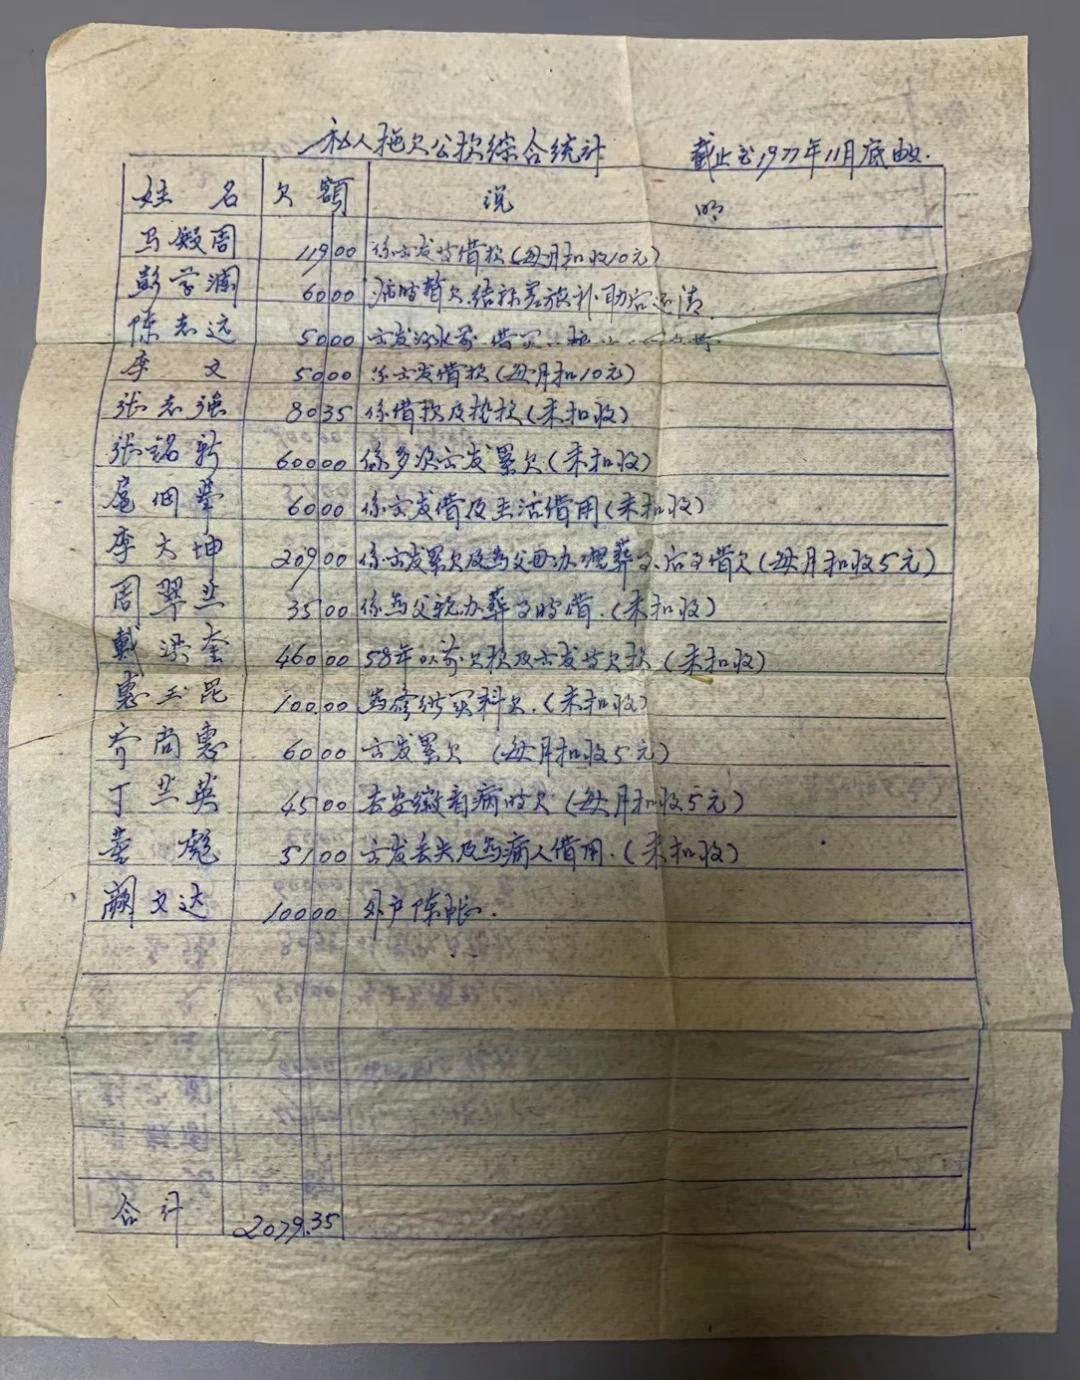 私人拖欠公款综合统计 截止至1977年11月底由.
姓名 欠额 说明
马毅周 119 00 係出发时借款(每月扣收10元)
彭学 60 00 暂欠.结补助后还清
陈志远 50 00 出发
李文 50 00 係出发借款(每月扣10元)
张志强 80 35 係借款及垫款(未扣收)
张铭新 600 00 係多次出发累欠(未扣收)
60 00 係出发借及生活借用(未扣收)
李大坤 209 00 係出发累欠及为父母办理葬又借欠(每月扣收5元)
周翠兰 35 00 係为父亲办葬时借.(未扣收)
戴洪奎 460 00 58年以前欠款及出发时欠款(未扣收)
惠玉昆 100.00 为买料欠.(未扣收)
齐尚惠 60 00 出发累欠 (每月扣收5元)
丁兰英 45 00 去安徽看病时欠(每月扣收5元)
彪 51 00 出发丢失及为病人借用.(未扣收)
阚文达 100 00 外户陈帐.
合计 2079.35